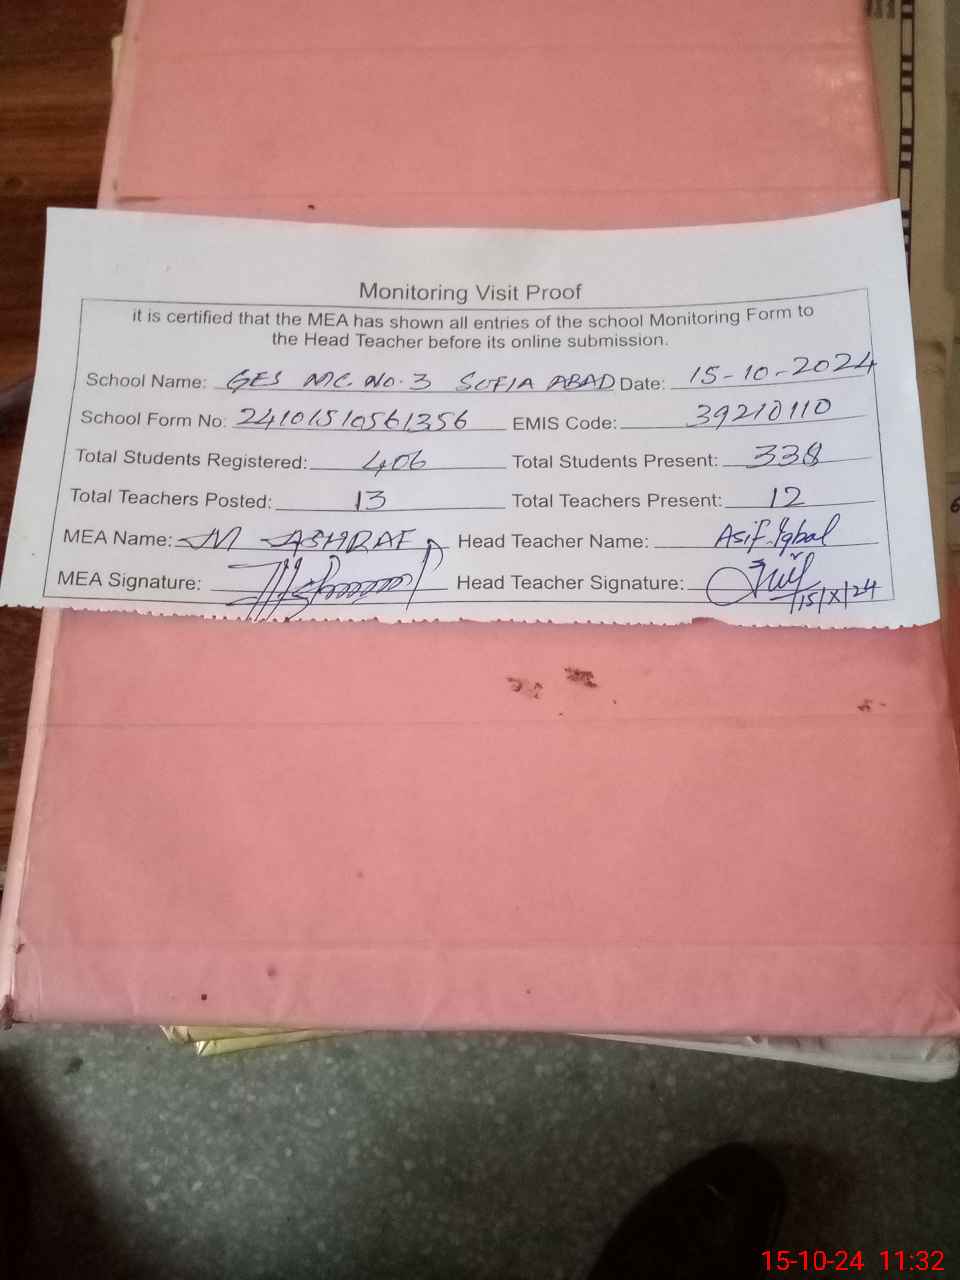 Monitoring Visit Proof
it is certified that the MEA has shown all entries of the school Monitoring Form to
the Head Teacher before its online submission.
School Name: GES MC. No. 3 SUFIA ABAD Date: 15-10-2024
School Form No: 24101510561356 EMIS Code: 39210110
Total Students Registered: 406 Total Students Present: 338
Total Teachers Posted: 13 Total Teachers Present: 12
MEA Name: M ASHRAF Head Teacher Name: Asif Iqbal
MEA Signature: Head Teacher Signature:
15/X/24
15-10-24 11:32